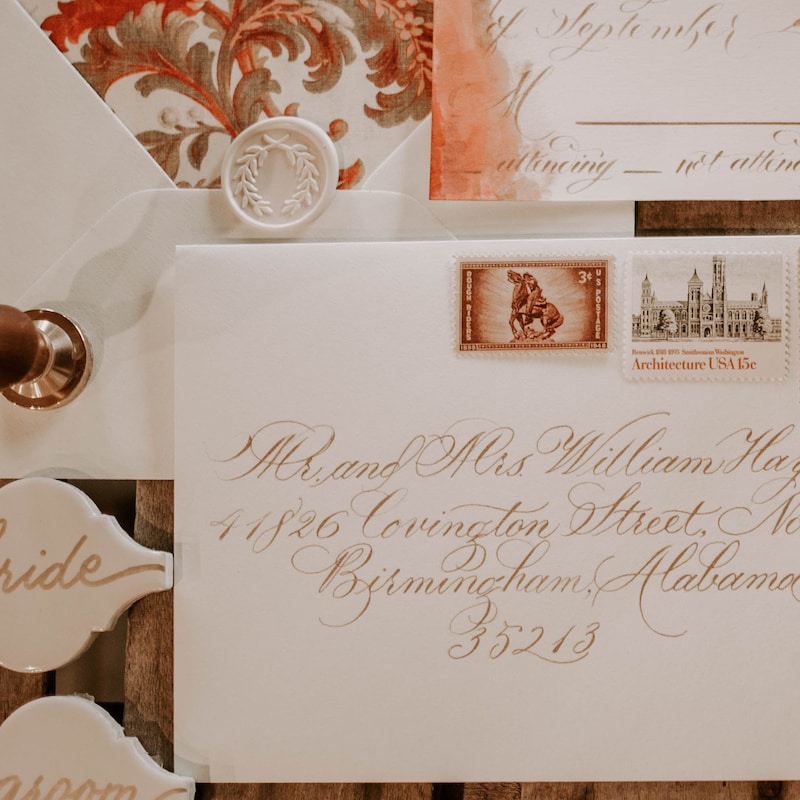 of September
M
attending not attend
ROUGH RIDERS
3¢
U.S. POSTAGE
1898 1948
Renwick 1818-1895 Smithsonian Washington
Architecture USA 15c
Mr. and Mrs. William Hay
41826 Covington Street, No
Birmingham, Alabama
35213
bride
groom